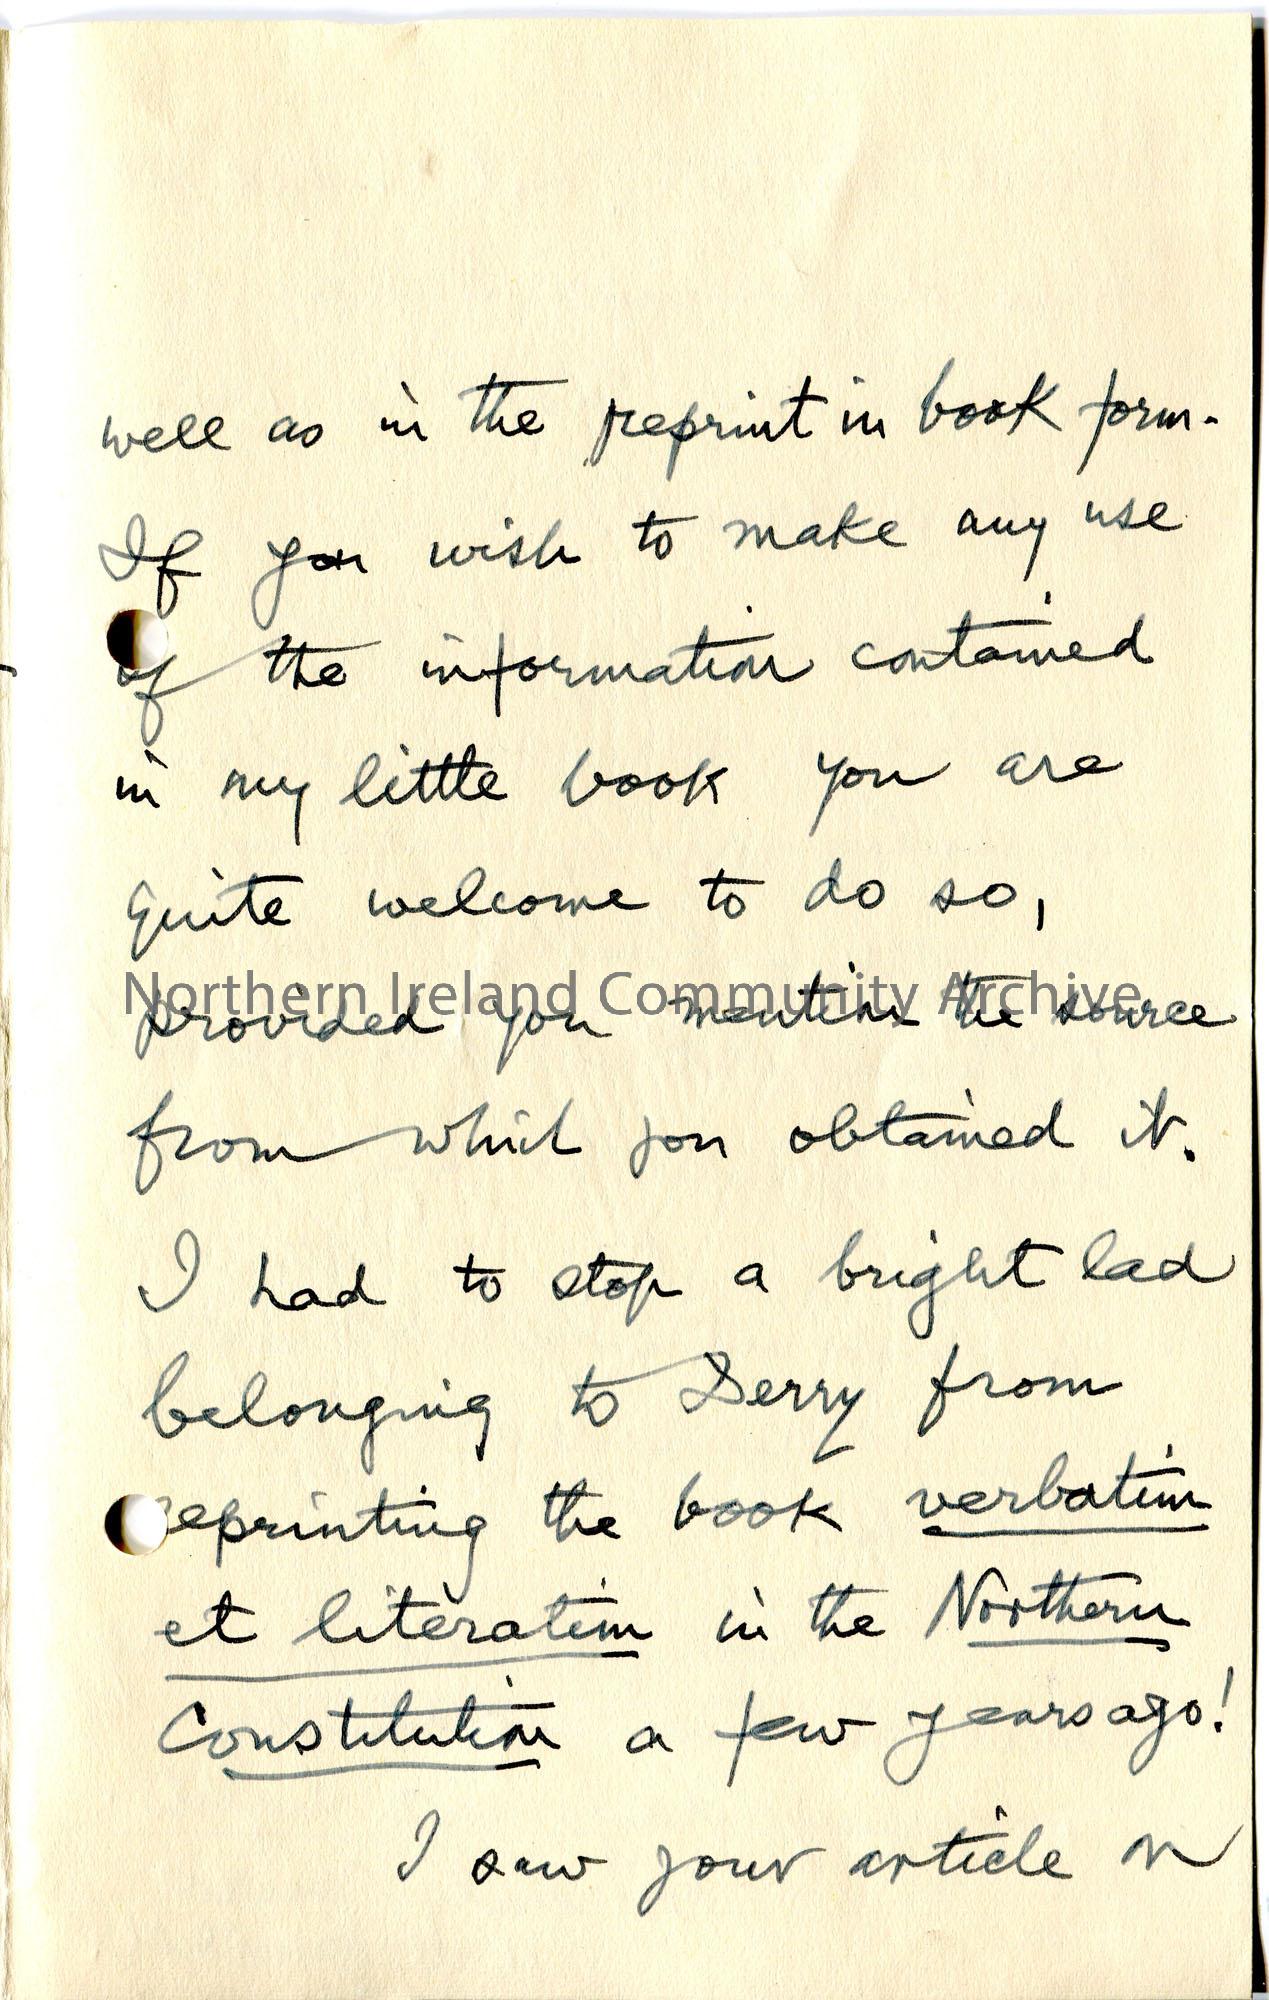 well as in the reprint in book form.
If you wish to make any use
of the information contained
in my little book you are
quite welcome to do so,
Northern Ireland Community Archive
provided you mention the source
from which you obtained it.
I had to stop a bright lad
belonging to Derry from
reprinting the book verbatim
et literatim in the Northern
Constitution a few years ago!
I saw your article on